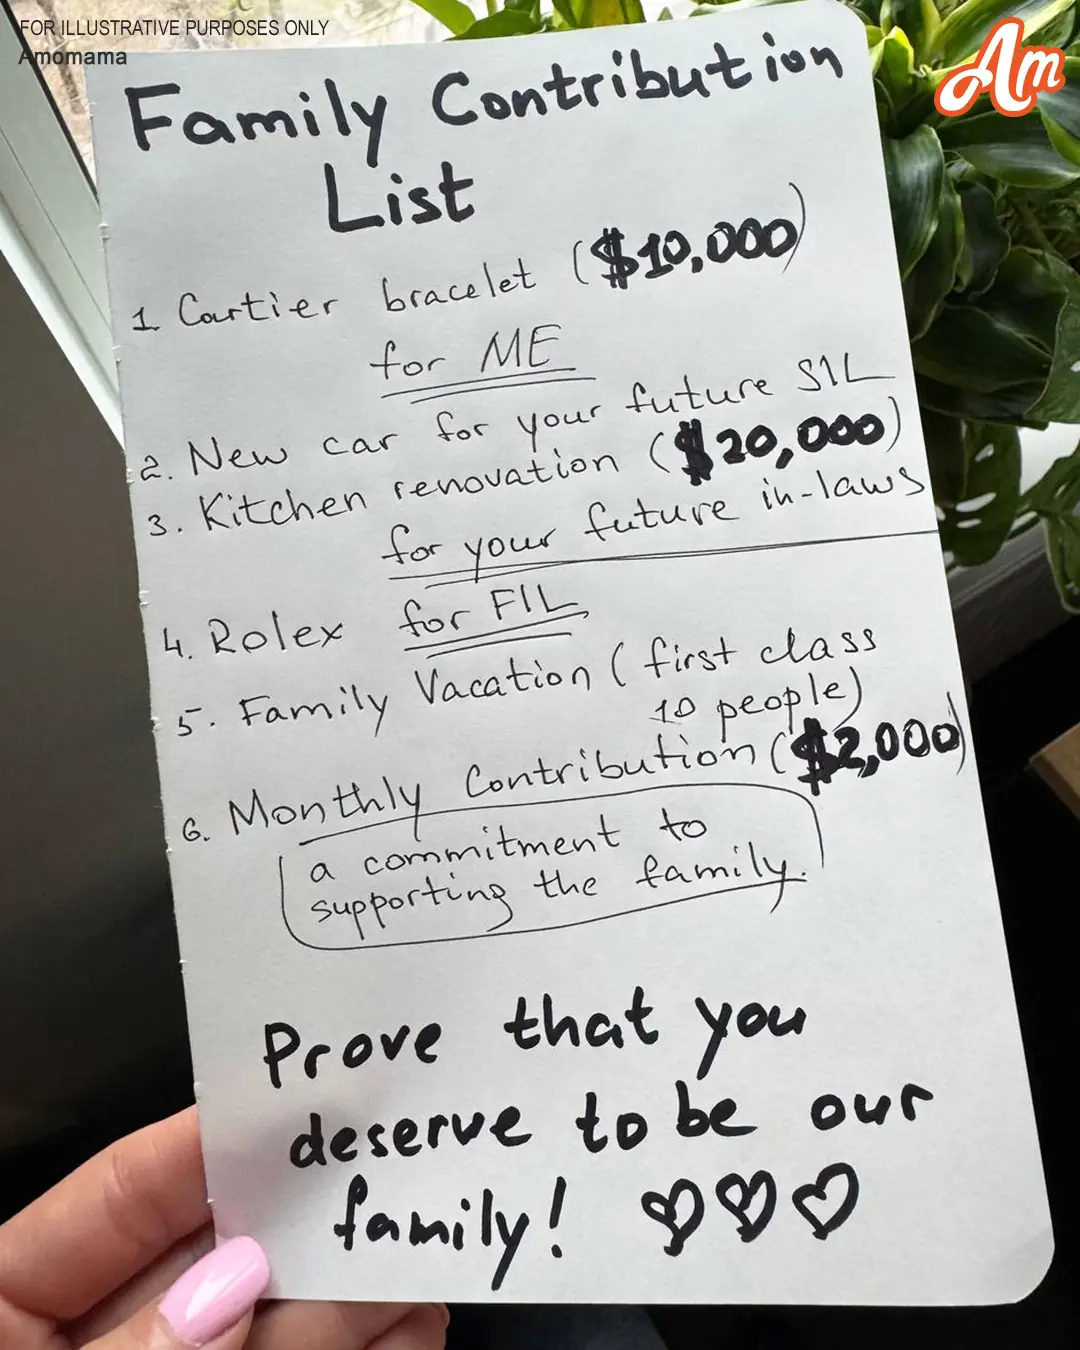 FOR ILLUSTRATIVE PURPOSES ONLY
Amomama
Am
Family Contribution
List
1. Cartier bracelet ($10,000)
for ME
2. New car for your future SIL
3. Kitchen renovation ($20,000)
for your future in-laws
4. Rolex for FIL
5. Family Vacation (first class
10 people)
6. Monthly Contribution ($2,000)
a commitment to
supporting the family.
Prove that you
deserve to be our
family! ♡♡♡